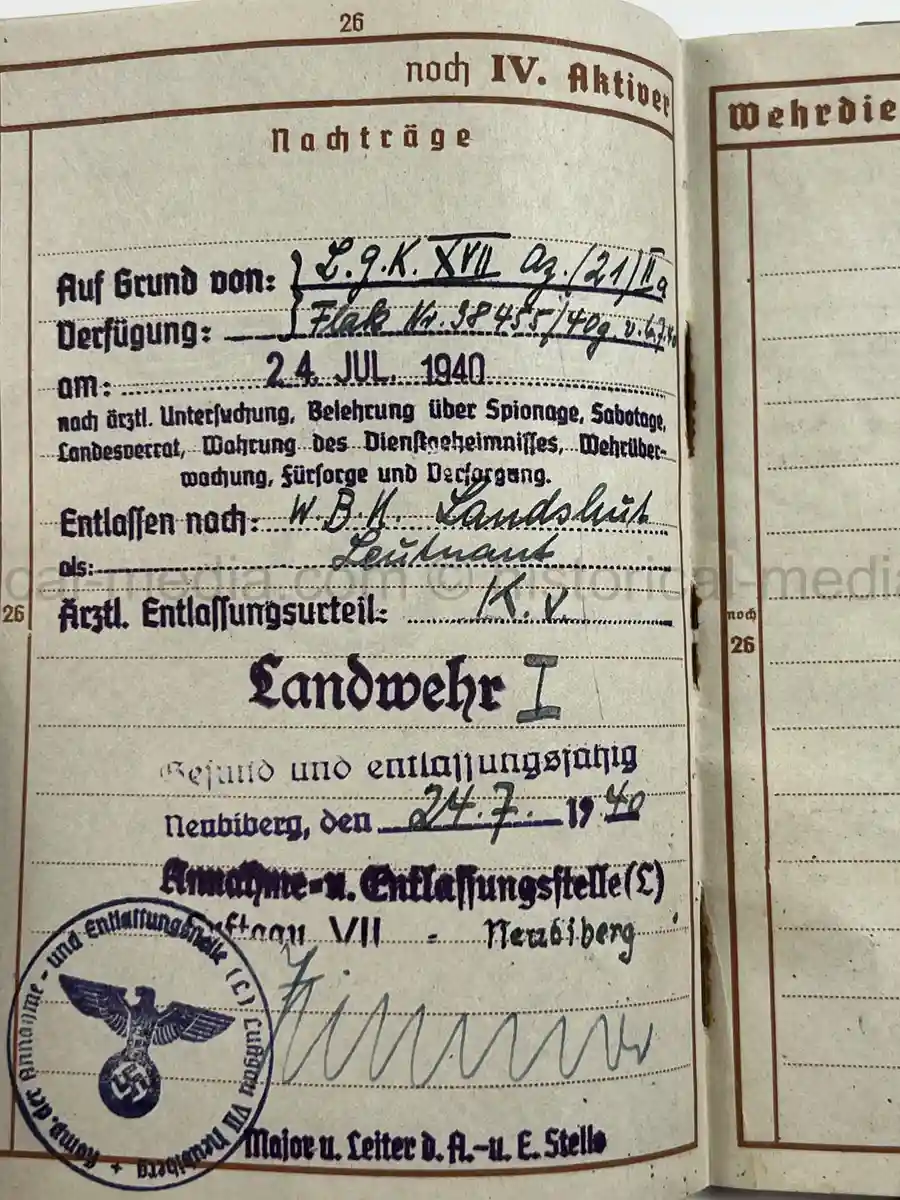 26
noch IV. Aktiver
Wehrdie
Nachträge
Auf Grund von: L.g.K. XVII Az./21/IIa
Verfügung: Flak Nr. 38455/40g. v.
am: 24. JUL. 1940
nach ärztl. Untersuchung, Belehrung über Spionage, Sabotage,
Landesverrat, Wahrung des Dienstgeheimnisses, Wehrüber-
wachung, Fürsorge und Versorgung.
Entlassen nach: W.B.K. Landshut
als: Leutnant
car-media.com © historical-media
26 Ärztl. Entlassungsurteil: K.v.
noch
26
Landwehr I
Gesund und entlassungsfähig
Neubiberg, den 24.7. 1940
Annahme- u. Entlassungsstelle (L)
Luftgau VII - Neubiberg
Komp. der Annahme- und Entlassungsstelle (L) Luftgau VII Neubiberg +
Major u. Leiter d. A.-u. E. Stelle